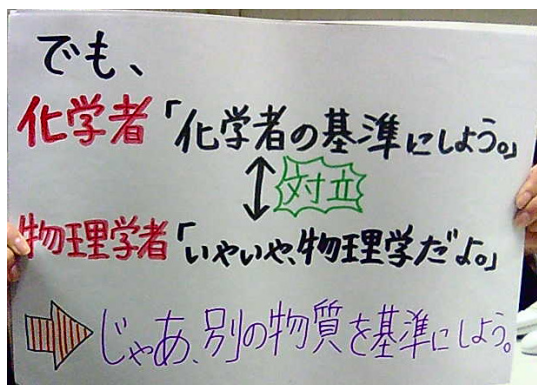 でも、
化学者「化学者の基準にしよう。」
対立
物理学者「いやいや、物理学だよ。」
じゃあ、別の物質を基準にしよう。